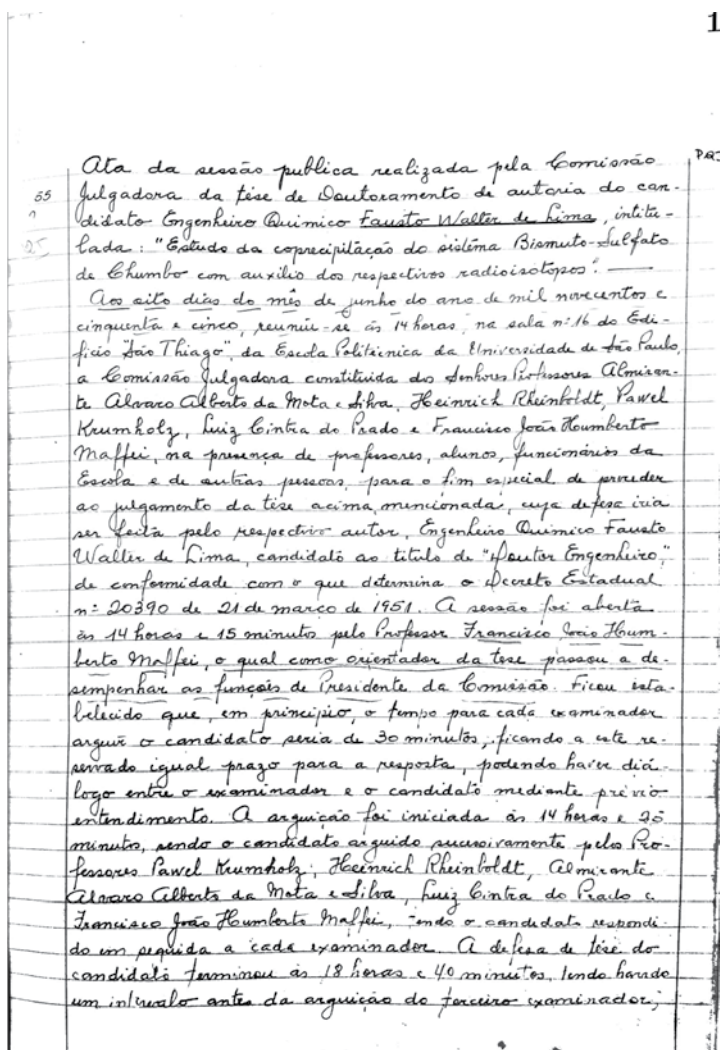 1
Ata da sessão publica realizada pela Comissão
PQI
55
Julgadora da tése de Doutoramento de autoria do can-
didato Engenheiro Quimico Fausto Walter de Lima, intitu-
lada: "Estudo da coprecipitação do sistêma Bismuto-Sulfato
de Chumbo com auxilio dos respectivos radioisotopos".
Aos oito dias do mês de junho do ano de mil novecentos e
cinquenta e cinco, reuniu-se ás 14 horas, na sala nº 16 do Edi-
ficio "São Thiago", da Escola Politécnica da Universidade de São Paulo,
a Comissão Julgadora constituida dos Senhores Professores Almiran-
te Alvaro Alberto da Mota e Silva, Heinrich Rheinboldt, Pawel
Krumholz, Luiz Cintra do Prado e Francisco João Humberto
Maffei, na presença de professores, alunos, funcionários da
Escola e de outras pessoas, para o fim especial de proceder
ao julgamento da tése acima mencionada, cuja defesa iria
ser feita pelo respectivo autor, Engenheiro Quimico Fausto
Walter de Lima, candidato ao titulo de "Doutor Engenheiro",
de conformidade com o que determina o Decreto Estadual
nº 20390 de 21 de março de 1951. A sessão foi aberta
ás 14 horas e 15 minutos pelo Professor Francisco João Hum-
berto Maffei, o qual como orientador da tese passou a de-
sempenhar as funções de Presidente da Comissão. Ficou esta-
belecido que, em principio, o tempo para cada examinador
arguir o candidato seria de 30 minutos, ficando a este re-
servado igual prazo para a resposta, podendo haver diá-
logo entre o examinador e o candidato mediante prévio
entendimento. A arguição foi iniciada ás 14 horas e
minutos, sendo o candidato arguido sucessivamente pelos Pro-
fessores Pawel Krumholz, Heinrich Rheinboldt, Almirante
Alvaro Alberto da Mota e Silva, Luiz Cintra do Prado e
Francisco João Humberto Maffei, tendo o candidato respondi-
do em seguida a cada examinador. A defesa de tése do
candidato terminou ás 18 horas e 40 minutos, tendo havido
um intervalo antes da arguição do terceiro examinador;